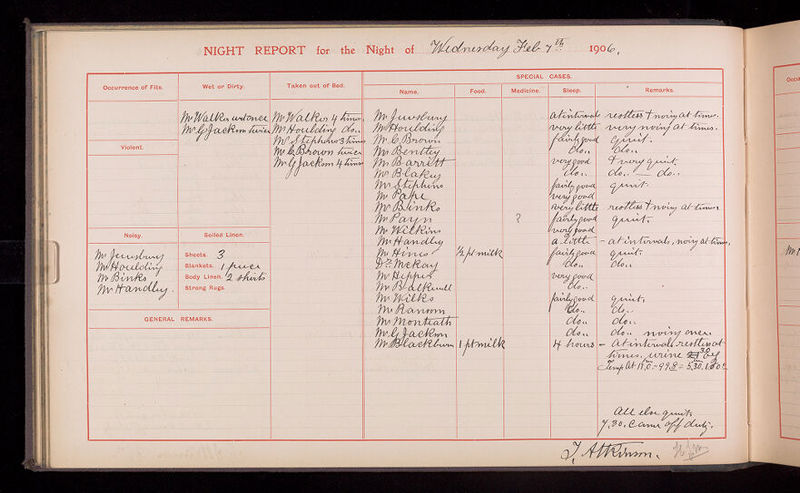 NIGHT REPORT for the Night of Wednesday Feb 7th 1906.
Occurrence of Fits.
Wet or Dirty.
Taken out of Bed.
SPECIAL CASES.
Name.
Food.
Medicine.
Sleep.
Remarks.
Mr Walker wet once
Mr G Jackson twice
Mr Walker 4 times
Mr Houlding do..
Mr Stephens 3 times
Mr C. Brown twice
Mr G Jackson 4 times
Violent.
Noisy.
Mr Jewsbury
Mr Houlding
Mr Binks
Mr Handley.
Soiled Linen.
Sheets. 3
Blankets. 1 piece
Body Linen. 2 shirts
Strong Rugs.
GENERAL REMARKS.
Mr Jewsbury at intervals restless & noisy at times.
Mr Houlding very little very noisy at times.
Mr C. Brown fairly good quiet.
Mr Bentley do.. do..
Mr Barrett very good & very quiet.
Mr Blakey do.. do.. — do..
Mr Stephens fairly good quiet.
Mr Pape very good
Mr Binks very little restless & noisy at times
Mr Payn ? fairly good quiet.
Mr Wilkins very good
Mr Handley a little - at intervals, noisy at times,
Mr Hines ½ pt milk fairly good quiet.
McKay do.. do..
Mr Hipper very good
Mr do..
Mr Wilks fairly good quiet,
Mr Ransom do.. do..
Mr Monteath do.. do..
Mr G Jackson do.. do.. noisy once.
Mr Blackburn 1 pt milk 4 hours - At intervals. restless at
times. urine
Temp at
All else quiet
7.30. Came off duty.
J. Atkinson.